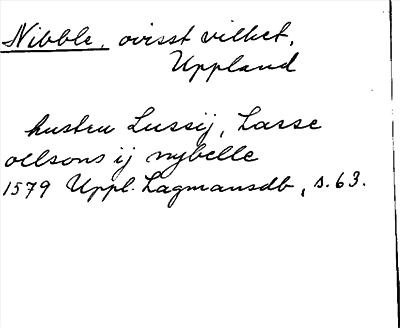 Nibble, ovisst vilket,
Uppland
hustru Lussij, Lasse
ollsons ij nybelle
1579 Uppl. Lagmansdb, s. 63.